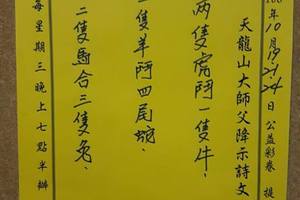 100年10月19.21.24日公益彩卷 提
天龍山大師父降示詩文
兩隻虎鬥一隻牛.
隻羊鬥四尾蛇.
二隻馬合三隻兔.
每星期三晚上七點半辦